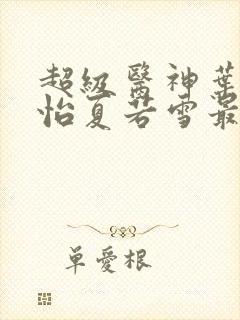 超級醫神葉
怡夏若雪最
單愛根